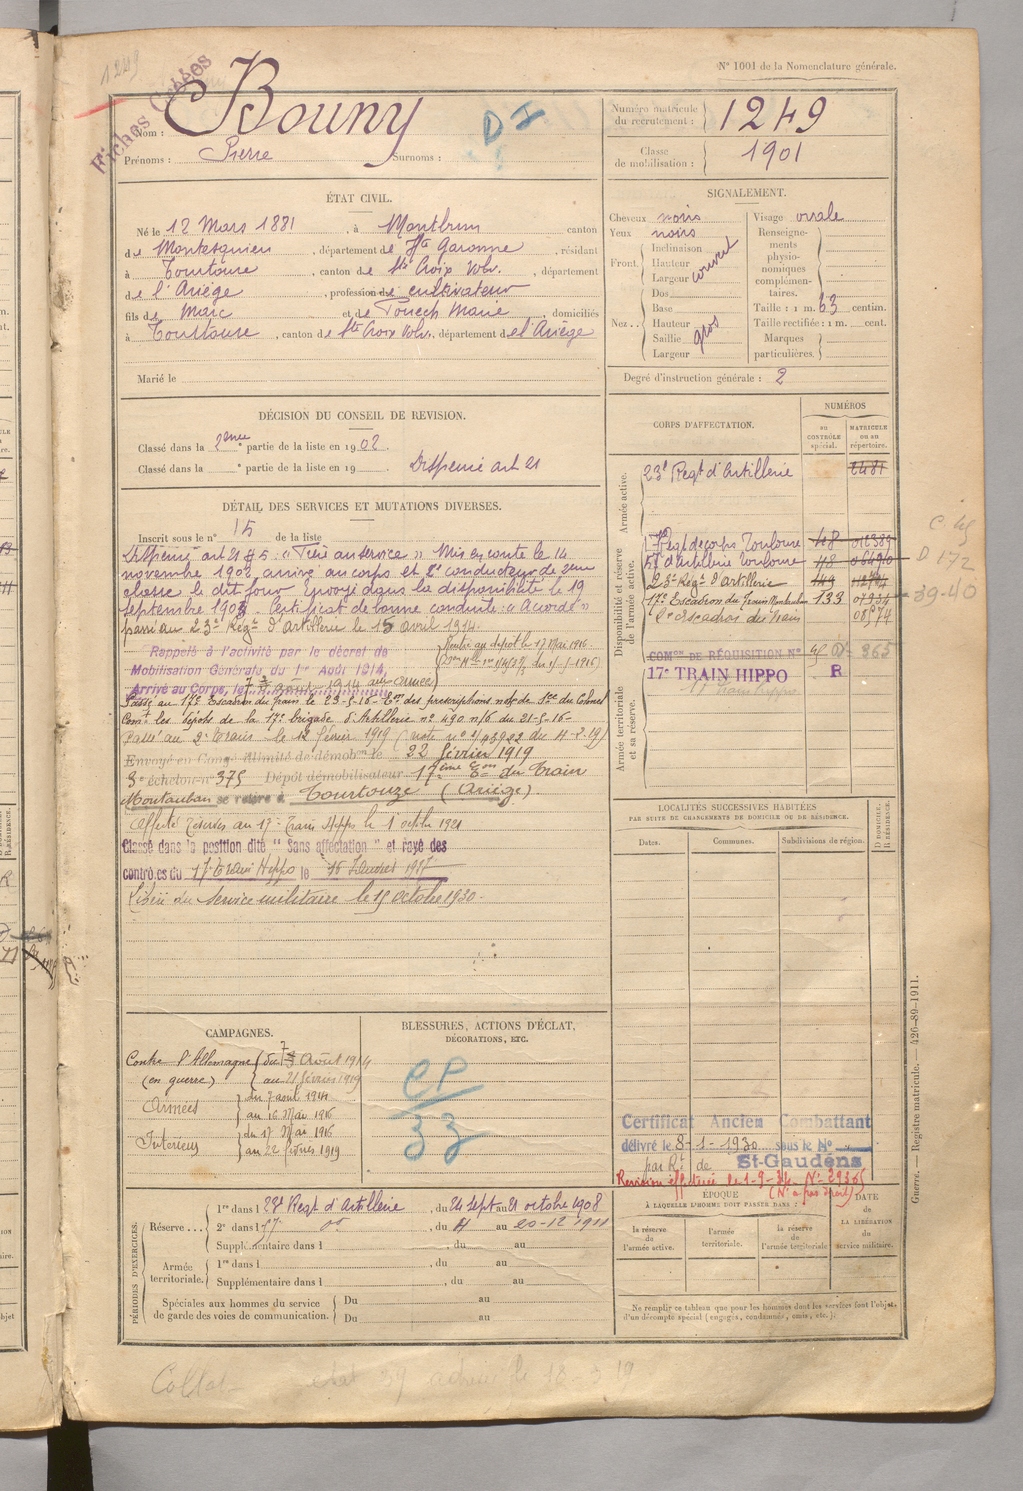 1249
Fiches Créées
N° 1001 de la Nomenclature générale.
Nom : Bouny
Prénoms : Pierre Surnoms :
D I
Numéro matricule du recrutement : 1249
Classe de mobilisation : 1901
ÉTAT CIVIL.
Né le 12 Mars 1881, à Montbrun canton
de Montesquieu, département de Hte Garonne, résidant
à Tourtouse, canton de Ste Croix Volv., département
de l'Ariège, profession de cultivateur
fils de Marc et de Touech Marie, domiciliés
à Tourtouse, canton de Ste Croix Volv., département de l'Ariège
Marié le
SIGNALEMENT.
Cheveux noirs
Yeux noirs
Front. Inclinaison
Hauteur
Largeur
couvert
Nez.. Dos
Base
Hauteur
Saillie
Largeur
gros
Visage ovale
Renseignements physionomiques complémentaires.
Taille : 1 m. 63 centim.
Taille rectifiée : 1 m. cent.
Marques particulières.
Degré d'instruction générale : 2
DÉCISION DU CONSEIL DE REVISION.
Classé dans la 2eme partie de la liste en 1902
Classé dans la ° partie de la liste en 19 Dispensé art 21
DÉTAIL DES SERVICES ET MUTATIONS DIVERSES.
Inscrit sous le n° 15 de la liste
Dispensé art 21 § 5 : « Frère au service » Mis en route le 14
novembre 1902 arrivé au corps et 2e conducteur de 2eme
classe le dit jour Envoyé dans la disponibilité le 19
septembre 1903. Certificat de bonne conduite : « Accordé »
passé au 23e Régt d'artillerie le 15 avril 1914.
Rappelé à l'activité par le décret de
Mobilisation Générale du 1er Août 1914,
Arrivé au Corps, le 7 août 1914 aux armées
Rentré au dépôt le 17 Mai 1916
Passé au 17e Escadron du train le 23-5-16 des prescriptions note de Sce du Colonel
Comt les dépôts de la 17e brigade d'Artillerie n° 490 n/6 du 21-5-16-
Passé au 2e Train le 12 février 1919 (note n° du 4-2-19)
Envoyé en Congé illimité de démobon le 22 février 1919
3e échelon n° 375 Dépôt démobilisateur 17ème Eon du Train
Montauban se retire à Tourtouze (Ariège).
Affecté Réserves au 17e Train Hippo le 1 octobre 1921
Classé dans la position dite "Sans affectation" et rayé des
contrôles du 17e Train Hippo le 16 Janvier 1927
Libéré du Service militaire le 15 octobre 1930.
CORPS D'AFFECTATION.
NUMÉROS
AU CONTRÔLE spécial.
MATRICULE OU AU répertoire.
Armée active.
23e Regt d'Artillerie 2481
Disponibilité et réserve de l'armée active.
d'Artillerie Toulouse
23e Régt d'Artillerie 449
17e Escadron du Train Montauban 133
Escadron du train
Armée territoriale et sa réserve.
COMon DE RÉQUISITION N° 365
17e TRAIN HIPPO R
17 Train hippo
D 172
39-40
LOCALITÉS SUCCESSIVES HABITÉES
PAR SUITE DE CHANGEMENTS DE DOMICILE OU DE RÉSIDENCE.
Dates. Communes. Subdivisions de région. D. DOMICILE. R. RÉSIDENCE.
CAMPAGNES.
Contre l'Allemagne du 7 Août 1914
(en guerre) au 21 février 1919
Armées du 7 aout 1914
au 16 Mai 1916
Intérieur du 17 Mai 1916
au 22 février 1919
BLESSURES, ACTIONS D'ÉCLAT,
DÉCORATIONS, ETC.
CP
33
Certificat Ancien Combattant
délivré le 8-1-1930 sous le N°
par Rt de St-Gaudens
Revision effectuée le 1-9-34 N° 29305
PÉRIODES D'EXERCICES.
Réserve... 1re dans l 23e Regt d'Artillerie, du 24 Sept au 21 octobre 1908
2e dans l 17e, du 4 au 20-12-1911
Supplémentaire dans l, du au
Armée territoriale. 1re dans l, du au
Supplémentaire dans l, du au
Spéciales aux hommes du service de garde des voies de communication. Du au
Du au
ÉPOQUE
À LAQUELLE L'HOMME DOIT PASSER DANS :
la réserve de l'armée active.
l'armée territoriale.
la réserve de l'armée territoriale
DATE de LA LIBÉRATION du service militaire.
Ne remplir ce tableau que pour les hommes dont les services font l'objet
d'un décompte spécial (engagés, condamnés, omis, etc.).
Guerre. — Registre matricule. — 426-89-1911.